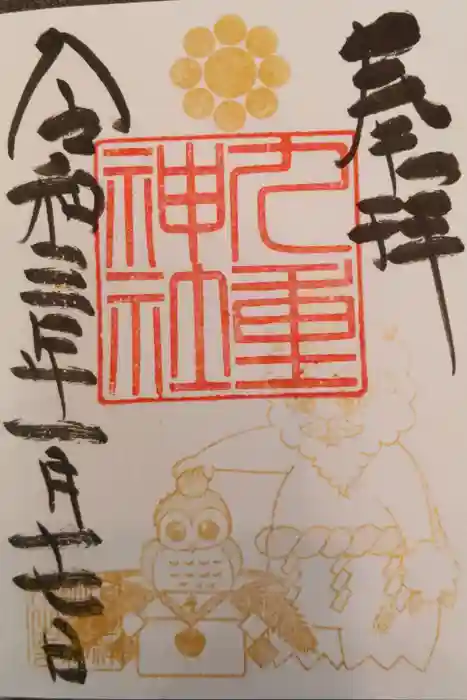 奉拝
九重
神社
令和三年一月十七日